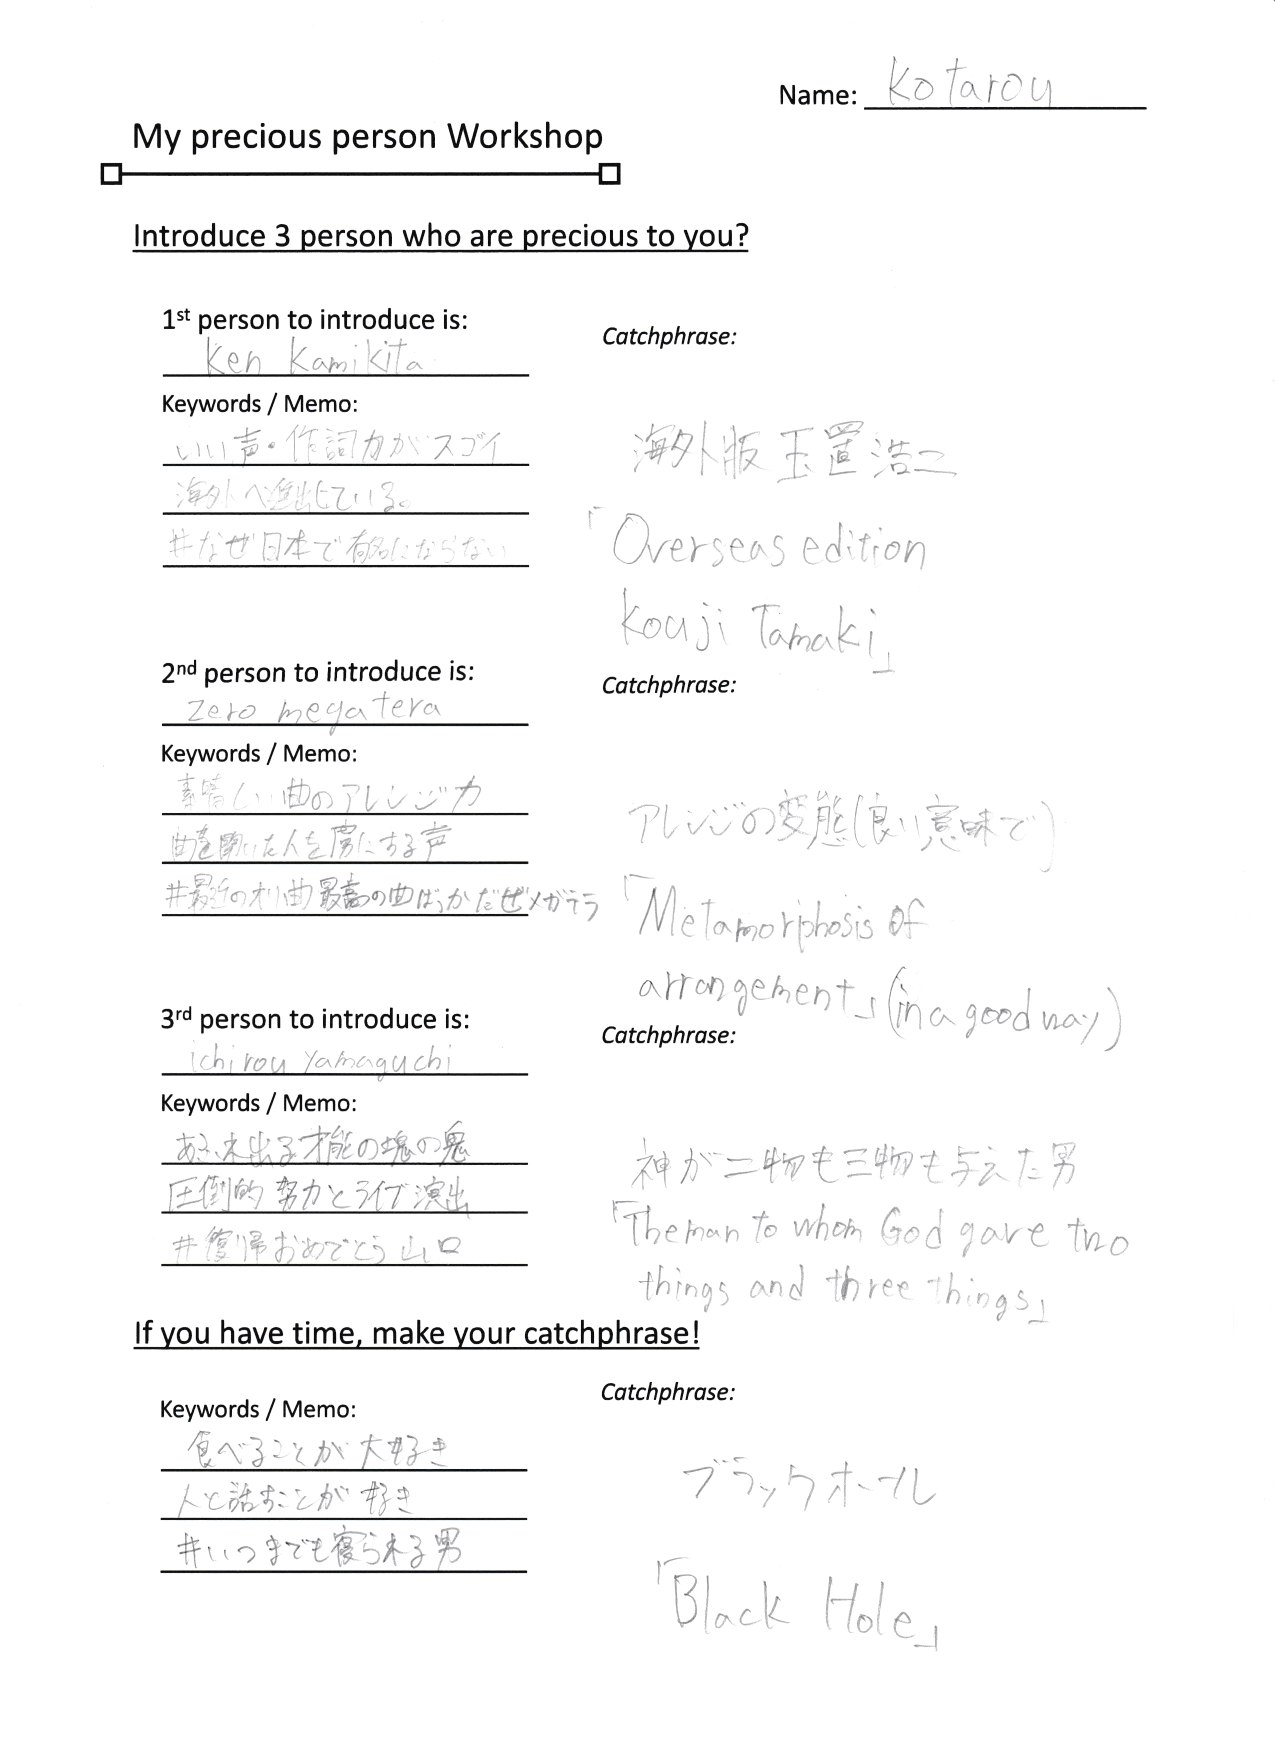 Name: Kotarou
My precious person Workshop
Introduce 3 person who are precious to you?
1st person to introduce is:
Ken Kamikita
Keywords / Memo:
いい声・作詞力がスゴイ
海外へ進出している。
#なぜ日本で有名にならない
Catchphrase:
海外版 玉置浩二
「Overseas edition
Kouji Tamaki」
2nd person to introduce is:
Zero megatera
Keywords / Memo:
素晴しい曲のアレンジ力
曲を聴いた人を虜にする声
#最近のオリ曲最高の曲ばっかだぜメガテラ
Catchphrase:
アレンジの変態(良い意味で)
「Metamorphosis of
arrangement」(in a good way)
3rd person to introduce is:
ichirou Yamaguchi
Keywords / Memo:
あふれ出る才能の塊の鬼
圧倒的努力とライブ演出
#復帰おめでとう山口
Catchphrase:
神が二物も三物も与えた男
「The man to whom God gave two
things and three things」
If you have time, make your catchphrase!
Keywords / Memo:
食べることが大好き
人と話すことが好き
#いつまでも寝られる男
Catchphrase:
ブラックホール
「Black Hole」